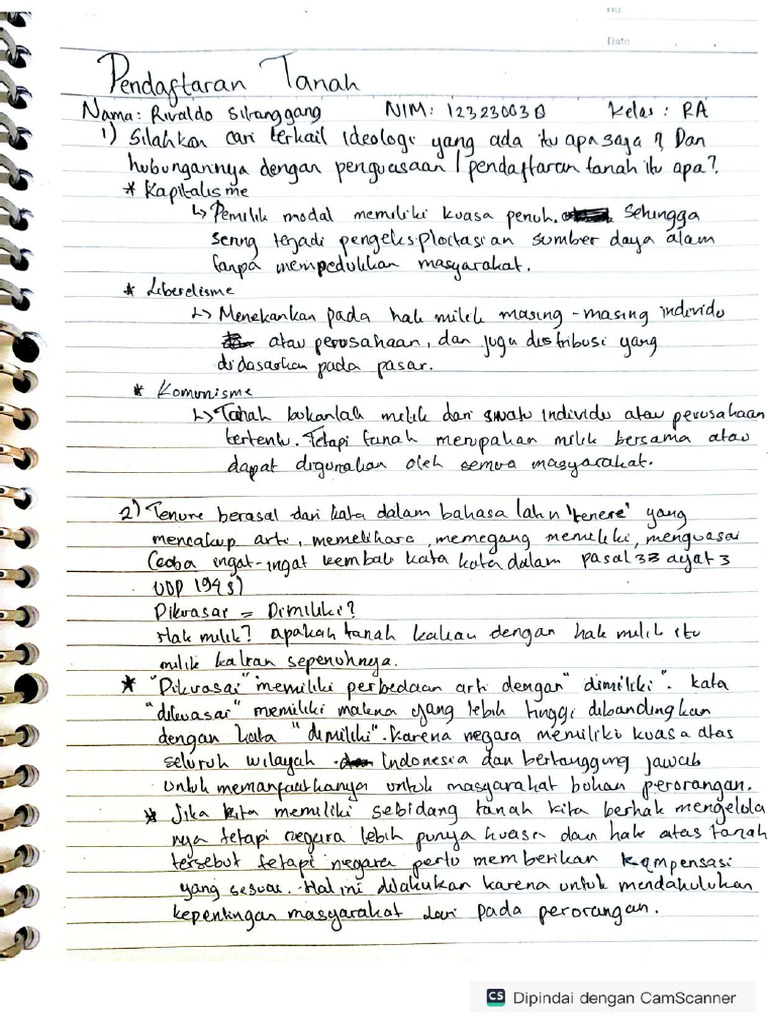 No.
Date
Pendaftaran Tanah
Nama: Rivaldo Siranggang NIM: 12323003 Kelas: RA
1) Silahkan cari terkait Ideologi yang ada itu apa saja? Dan
hubungannya dengan penguasaan / pendaftaran tanah itu apa?
* Kapitalisme
↳ Pemilik modal memiliki kuasa penuh. Sehingga
sering terjadi pengeksploitasian sumber daya alam
tanpa mempedulikan masyarakat.
* Liberelisme
↳ Menekankan pada hak milik masing-masing individu
atau perusahaan, dan juga distribusi yang
didasarkan pada pasar.
* Komunisme
↳ Tanah bukanlah milik dari suatu individu atau perusahaan
tertentu. Tetapi tanah merupakan milik bersama atau
dapat digunakan oleh semua masyarakat.
2) Tenure berasal dari kata dalam bahasa latin 'tenere' yang
mencakup arti, memelihara, memegang memiliki, menguasai
(coba ingat-ingat kembali kata kata dalam pasal 33 ayat 3
UUD 1945)
Dikuasai = Dimiliki?
Hak milik? apakah tanah kalian dengan hak milik itu
milik kalian sepenuhnya.
* "Dikuasai" memiliki perbedaan arti dengan "dimiliki". kata
"dikuasai" memiliki makna yang lebih tinggi dibandingkan
dengan kata "dimiliki". karena negara memiliki kuasa atas
seluruh wilayah Indonesia dan bertanggung jawab
untuk memanfaatkanya untuk masyarakat bukan perorangan.
* Jika kita memiliki sebidang tanah kita berhak mengelola
nya tetapi negara lebih punya kuasa dan hak atas tanah
tersebut tetapi negara perlu memberikan kompensasi
yang sesuai. Hal ini dilakukan karena untuk mendahulukan
kepentingan masyarakat dari pada perorangan.
CS Dipindai dengan CamScanner